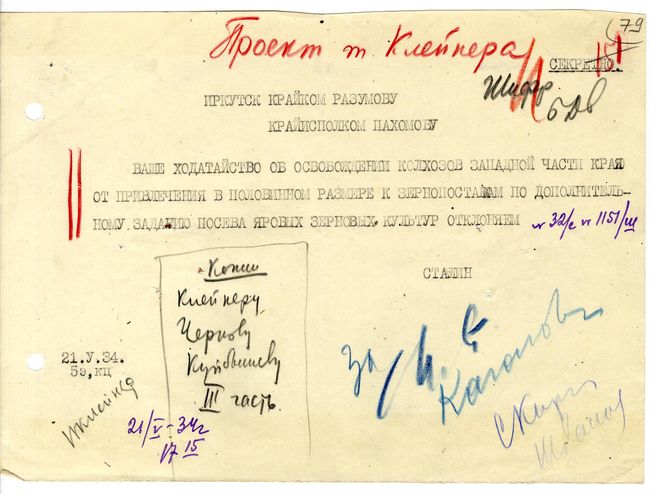 79
Проект т. Клейнера
СЕКРЕТНО.
Шифр
ИРКУТСК КРАЙКОМ РАЗУМОВУ
КРАЙИСПОЛКОМ ПАХОМОВУ
ВАШЕ ХОДАТАЙСТВО ОБ ОСВОБОЖДЕНИИ КОЛХОЗОВ ЗАПАДНОЙ ЧАСТИ КРАЯ
ОТ ПРИВЛЕЧЕНИЯ В ПОЛОВИННОМ РАЗМЕРЕ К ЗЕРНОПОСТАВКАМ ПО ДОПОЛНИТЕЛЬ-
НОМУ ЗАДАНИЮ ПОСЕВА ЯРОВЫХ ЗЕРНОВЫХ КУЛЬТУР ОТКЛОНЯЕМ N 32/с N 1151/ш
СТАЛИН
Копии
Клейнеру
Чернову
Куйбышеву
III часть
21.V.34.
5э,кц
ИКлейнер
21/V-34г
17 15
За
Каганович
Жданов